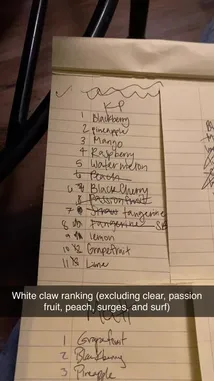 KP
1 Blackberry
2 Pineapple
3 Mango
4 Raspberry
5 Watermelon
6 Peach
6 Black Cherry
8 Passionfruit
7 Straw tangerine
8 Tangerine SB
9 Lemon
10 Grapefruit
11 Lime
White claw ranking (excluding clear, passion fruit, peach, surges, and surf)
1 Grapefruit
2 Blackberry
3 Pineapple